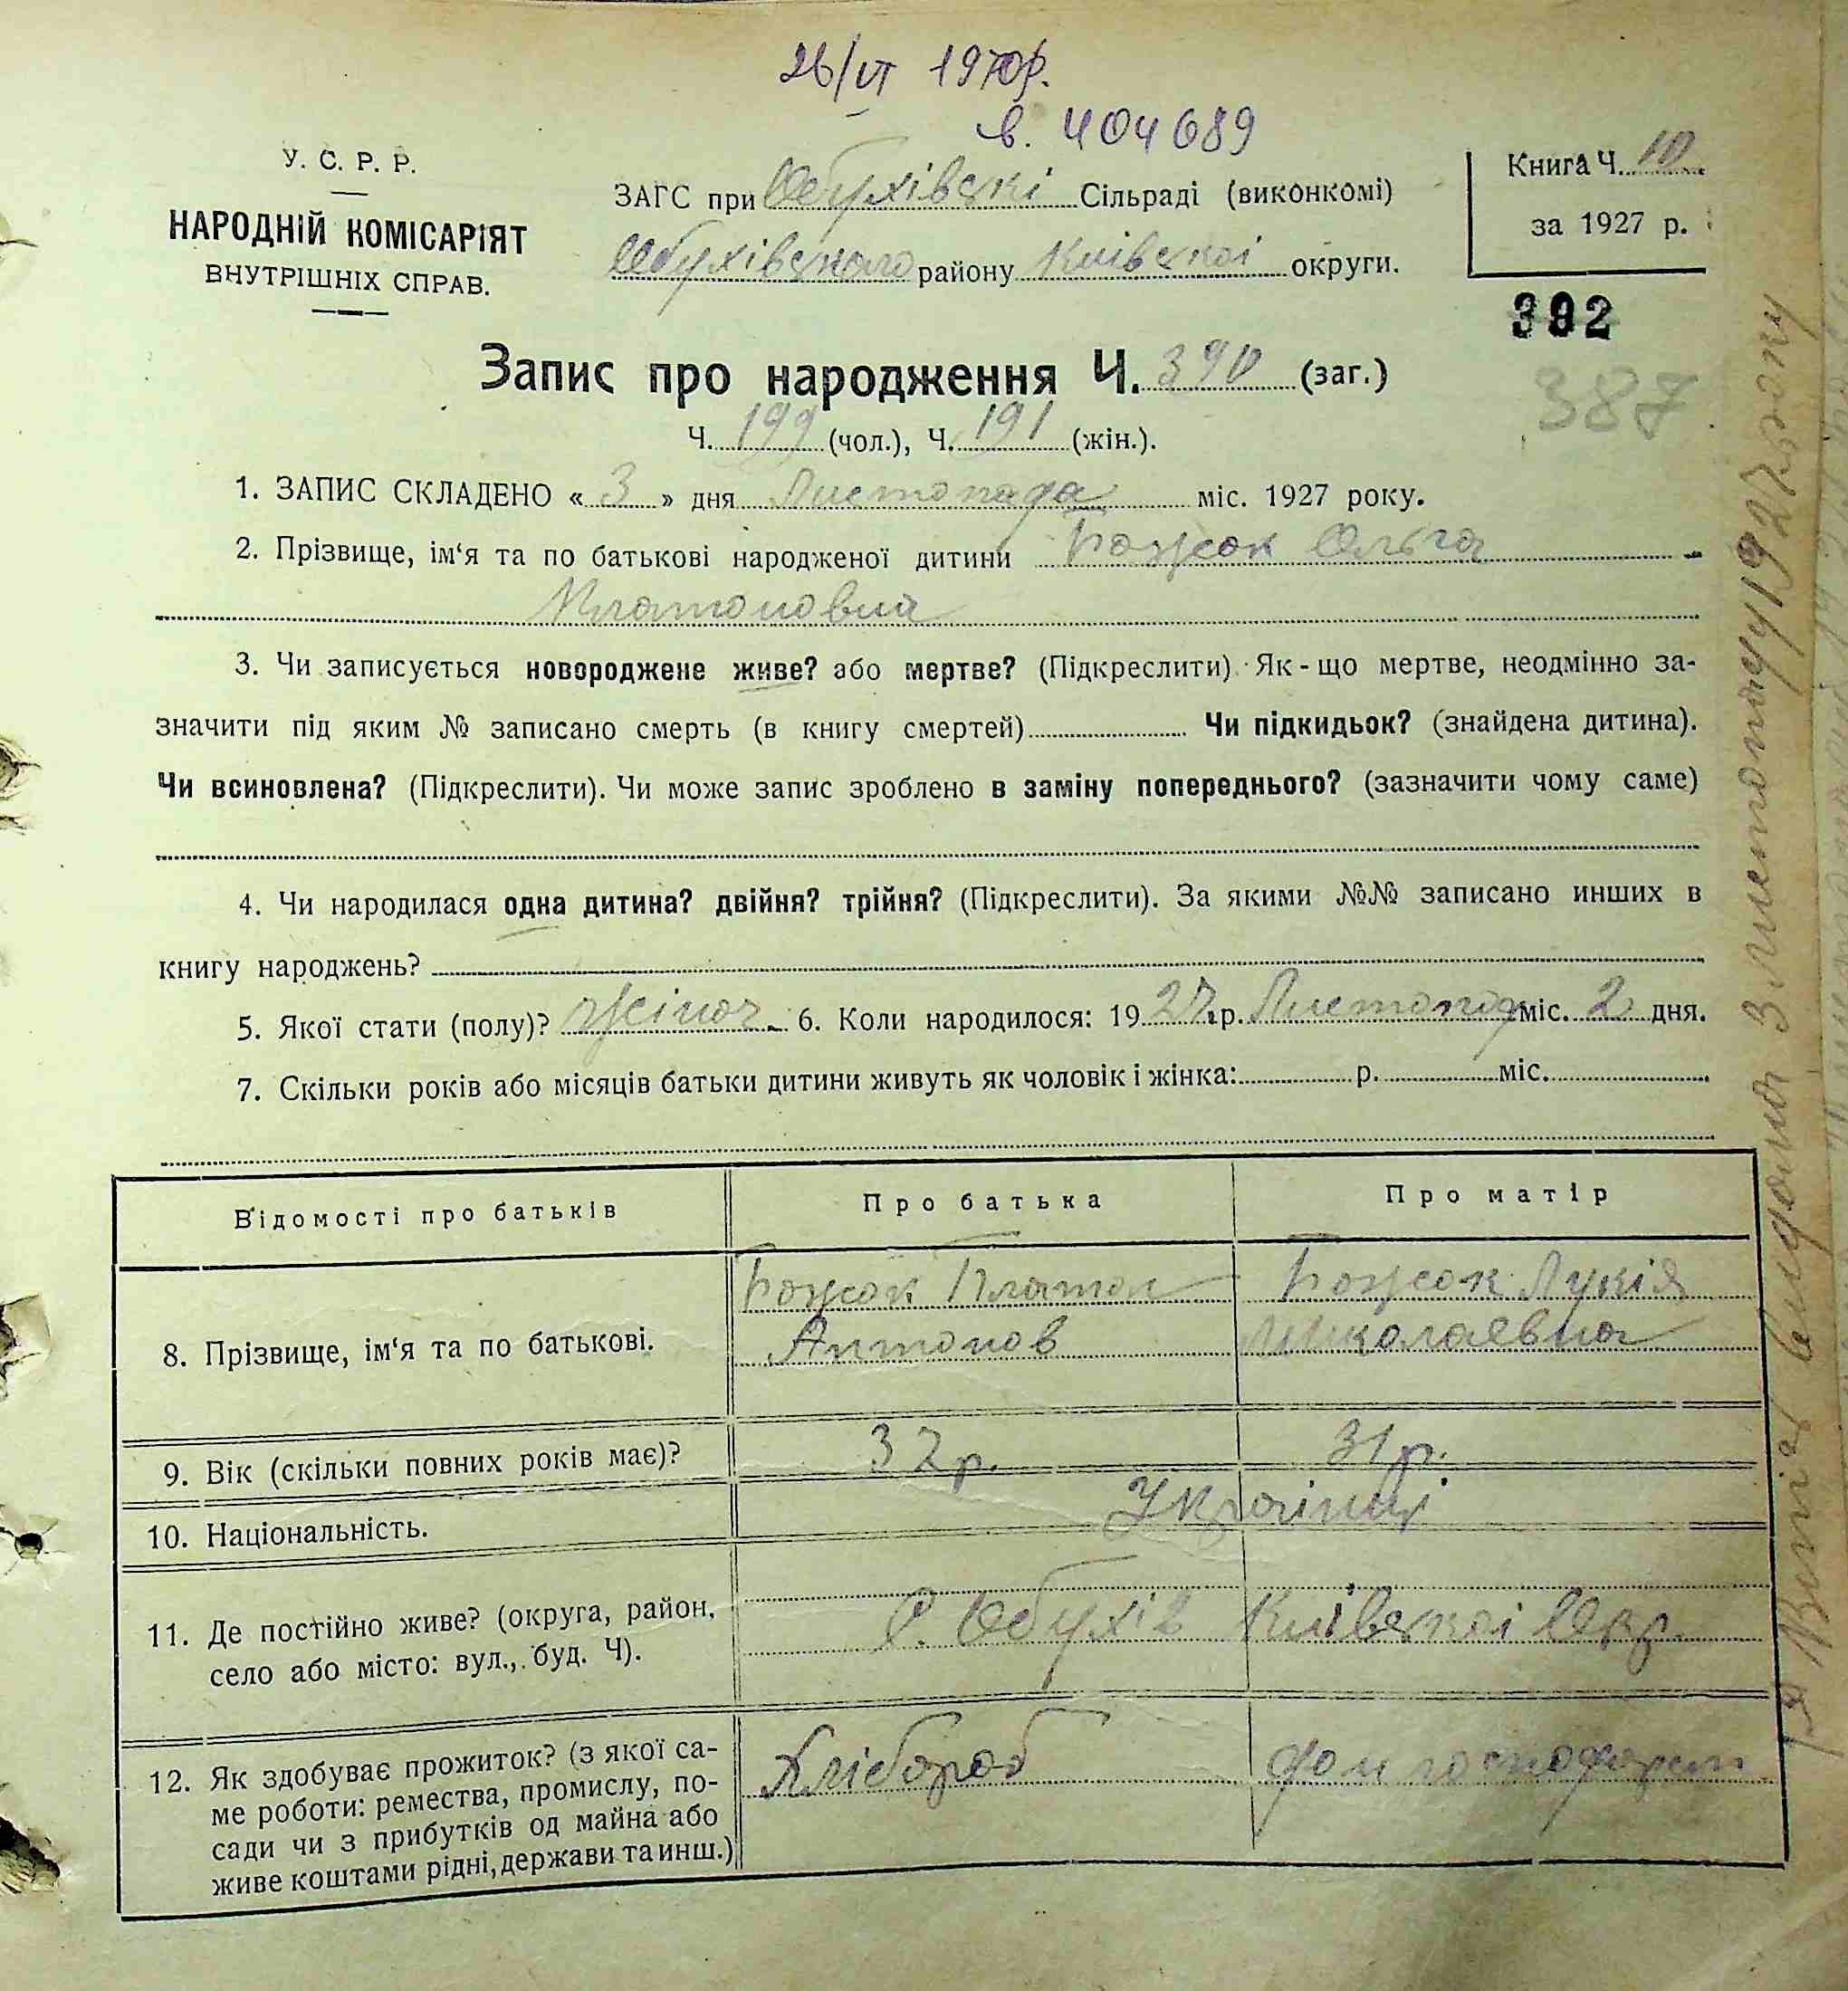 26/VI 1970р.
в. 404689
У. С. Р. Р.
НАРОДНІЙ КОМІСАРІЯТ
ВНУТРІШНІХ СПРАВ.
ЗАГС при Обухівскі Сільраді (виконкомі)
Обухівского району Київскоі округи.
Книга Ч. 10
за 1927 р.
392
387
Запис про народження Ч. 390 (заг.)
Ч. 199 (чол.), Ч. 191 (жін.).
1. ЗАПИС СКЛАДЕНО « 3 » дня Листопада міс. 1927 року.
2. Прізвище, ім‘я та по батькові народженої дитини Божок Ольга
Платоновна
3. Чи записується новороджене живе? або мертве? (Підкреслити) Як-що мертве, неодмінно за-
значити під яким № записано смерть (в книгу смертей) Чи підкидьок? (знайдена дитина).
Чи всиновлена? (Підкреслити). Чи може запис зроблено в заміну попереднього? (зазначити чому саме)
4. Чи народилася одна дитина? двійня? трійня? (Підкреслити). За якими №№ записано инших в
книгу народжень?
5. Якої стати (полу)? жіноч. 6. Коли народилося: 1927 р. Листопад міс. 2 дня.
7. Скільки років або місяців батьки дитини живуть як чоловік і жінка: р. міс.
Відомості про батьків Про батька Про матір
8. Прізвище, ім‘я та по батькові. Божок Платон Божок Лукія
Антонов Миколаєвна
9. Вік (скільки повних років має)? 32 р. 31 р.
10. Національність. Украінці
11. Де постійно живе? (округа, район,
село або місто: вул., буд. Ч). С. Обухів Київскоі Окр.
12. Як здобуває прожиток? (з якої са-
ме роботи: ремества, промислу, по-
сади чи з прибутків од майна або
живе коштами рідні, держави та инш.)
Хлібороб дом господарст
Витяг видано 3 листопаду 1927 року